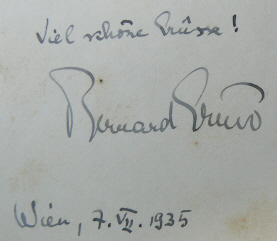 Viel schöne Grüsse!
Bernard
Wien, 7. VII. 1935